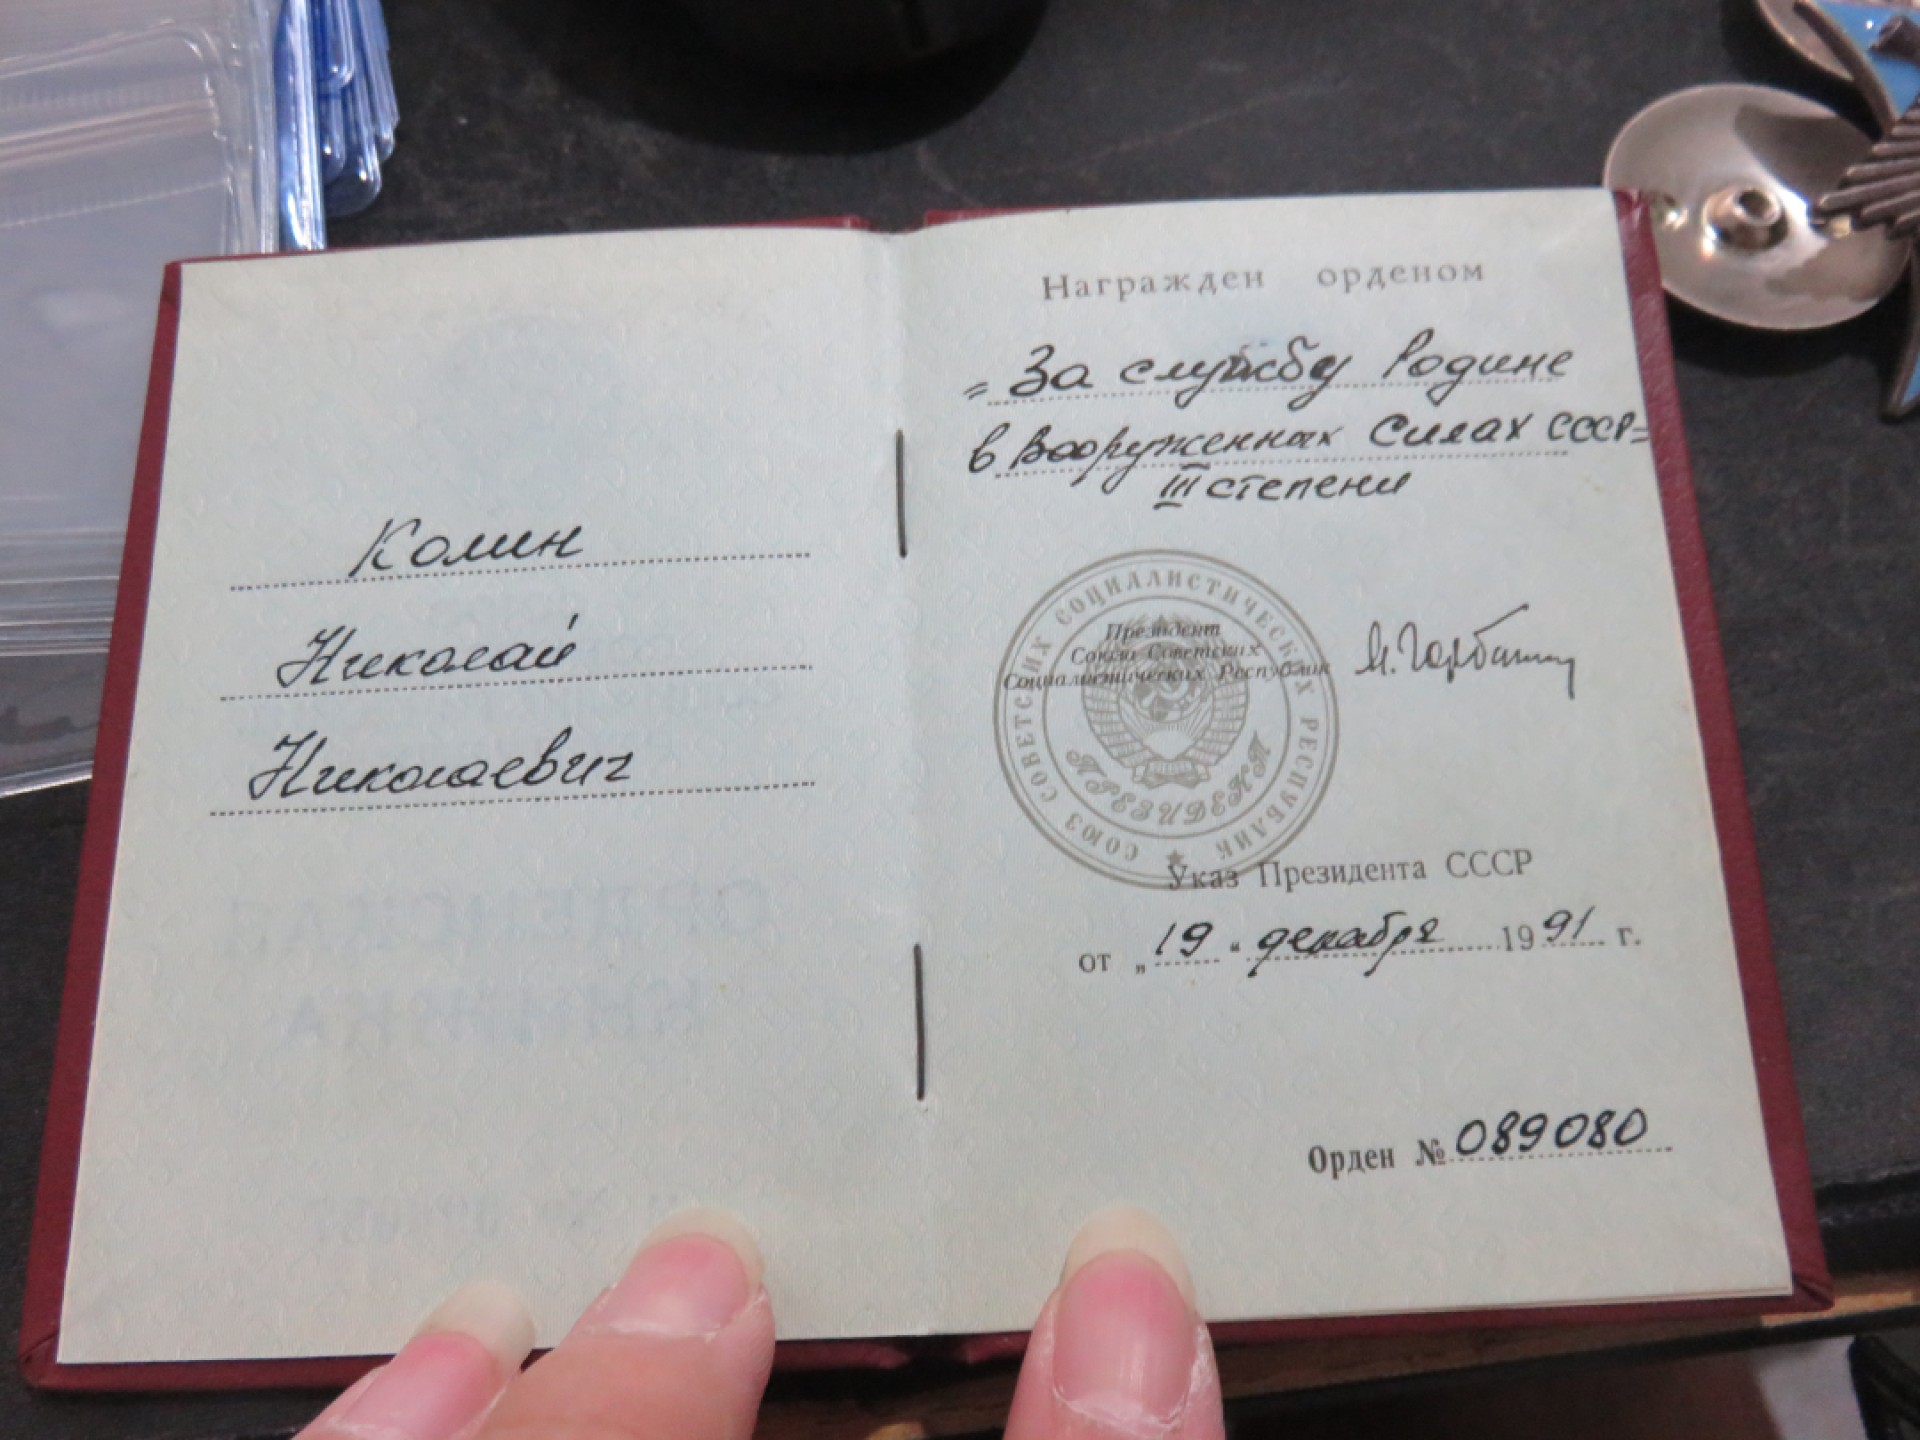 Колин
Николай
Николаевич
Награжден орденом
„За службу Родине
в Вооруженных Силах СССР"
III степени
СОЮЗ СОВЕТСКИХ СОЦИАЛИСТИЧЕСКИХ РЕСПУБЛИК
ПРЕЗИДЕНТ
Президент
Союза Советских
Социалистических Республик
М. Горбачев
Указ Президента СССР
от „19" декабря 1991 г.
Орден № 089080